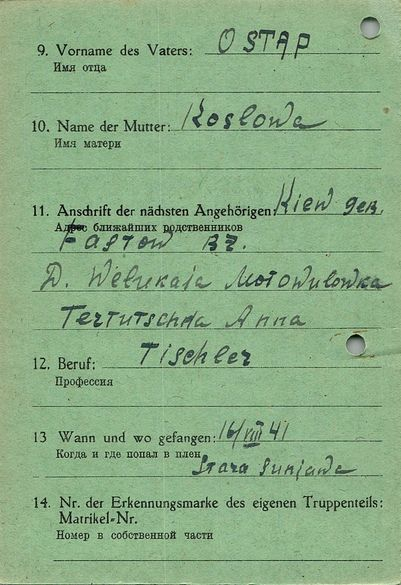 9. Vorname des Vaters: OSTAP
Имя отца
10. Name der Mutter: Koslowa
Имя матери
11. Anschrift der nächsten Angehörigen: Kiew geb.
Адрес ближайших родственников
Fastow Rz.
D. Welikaja Motowulowka
Tertutschna Anna
12. Beruf: Tischler
Профессия
13 Wann und wo gefangen: 16/VIII 41
Когда и где попал в плен
Stara Sunjawa
14. Nr. der Erkennungsmarke des eigenen Truppenteils:
Matrikel-Nr.
Номер в собственной части